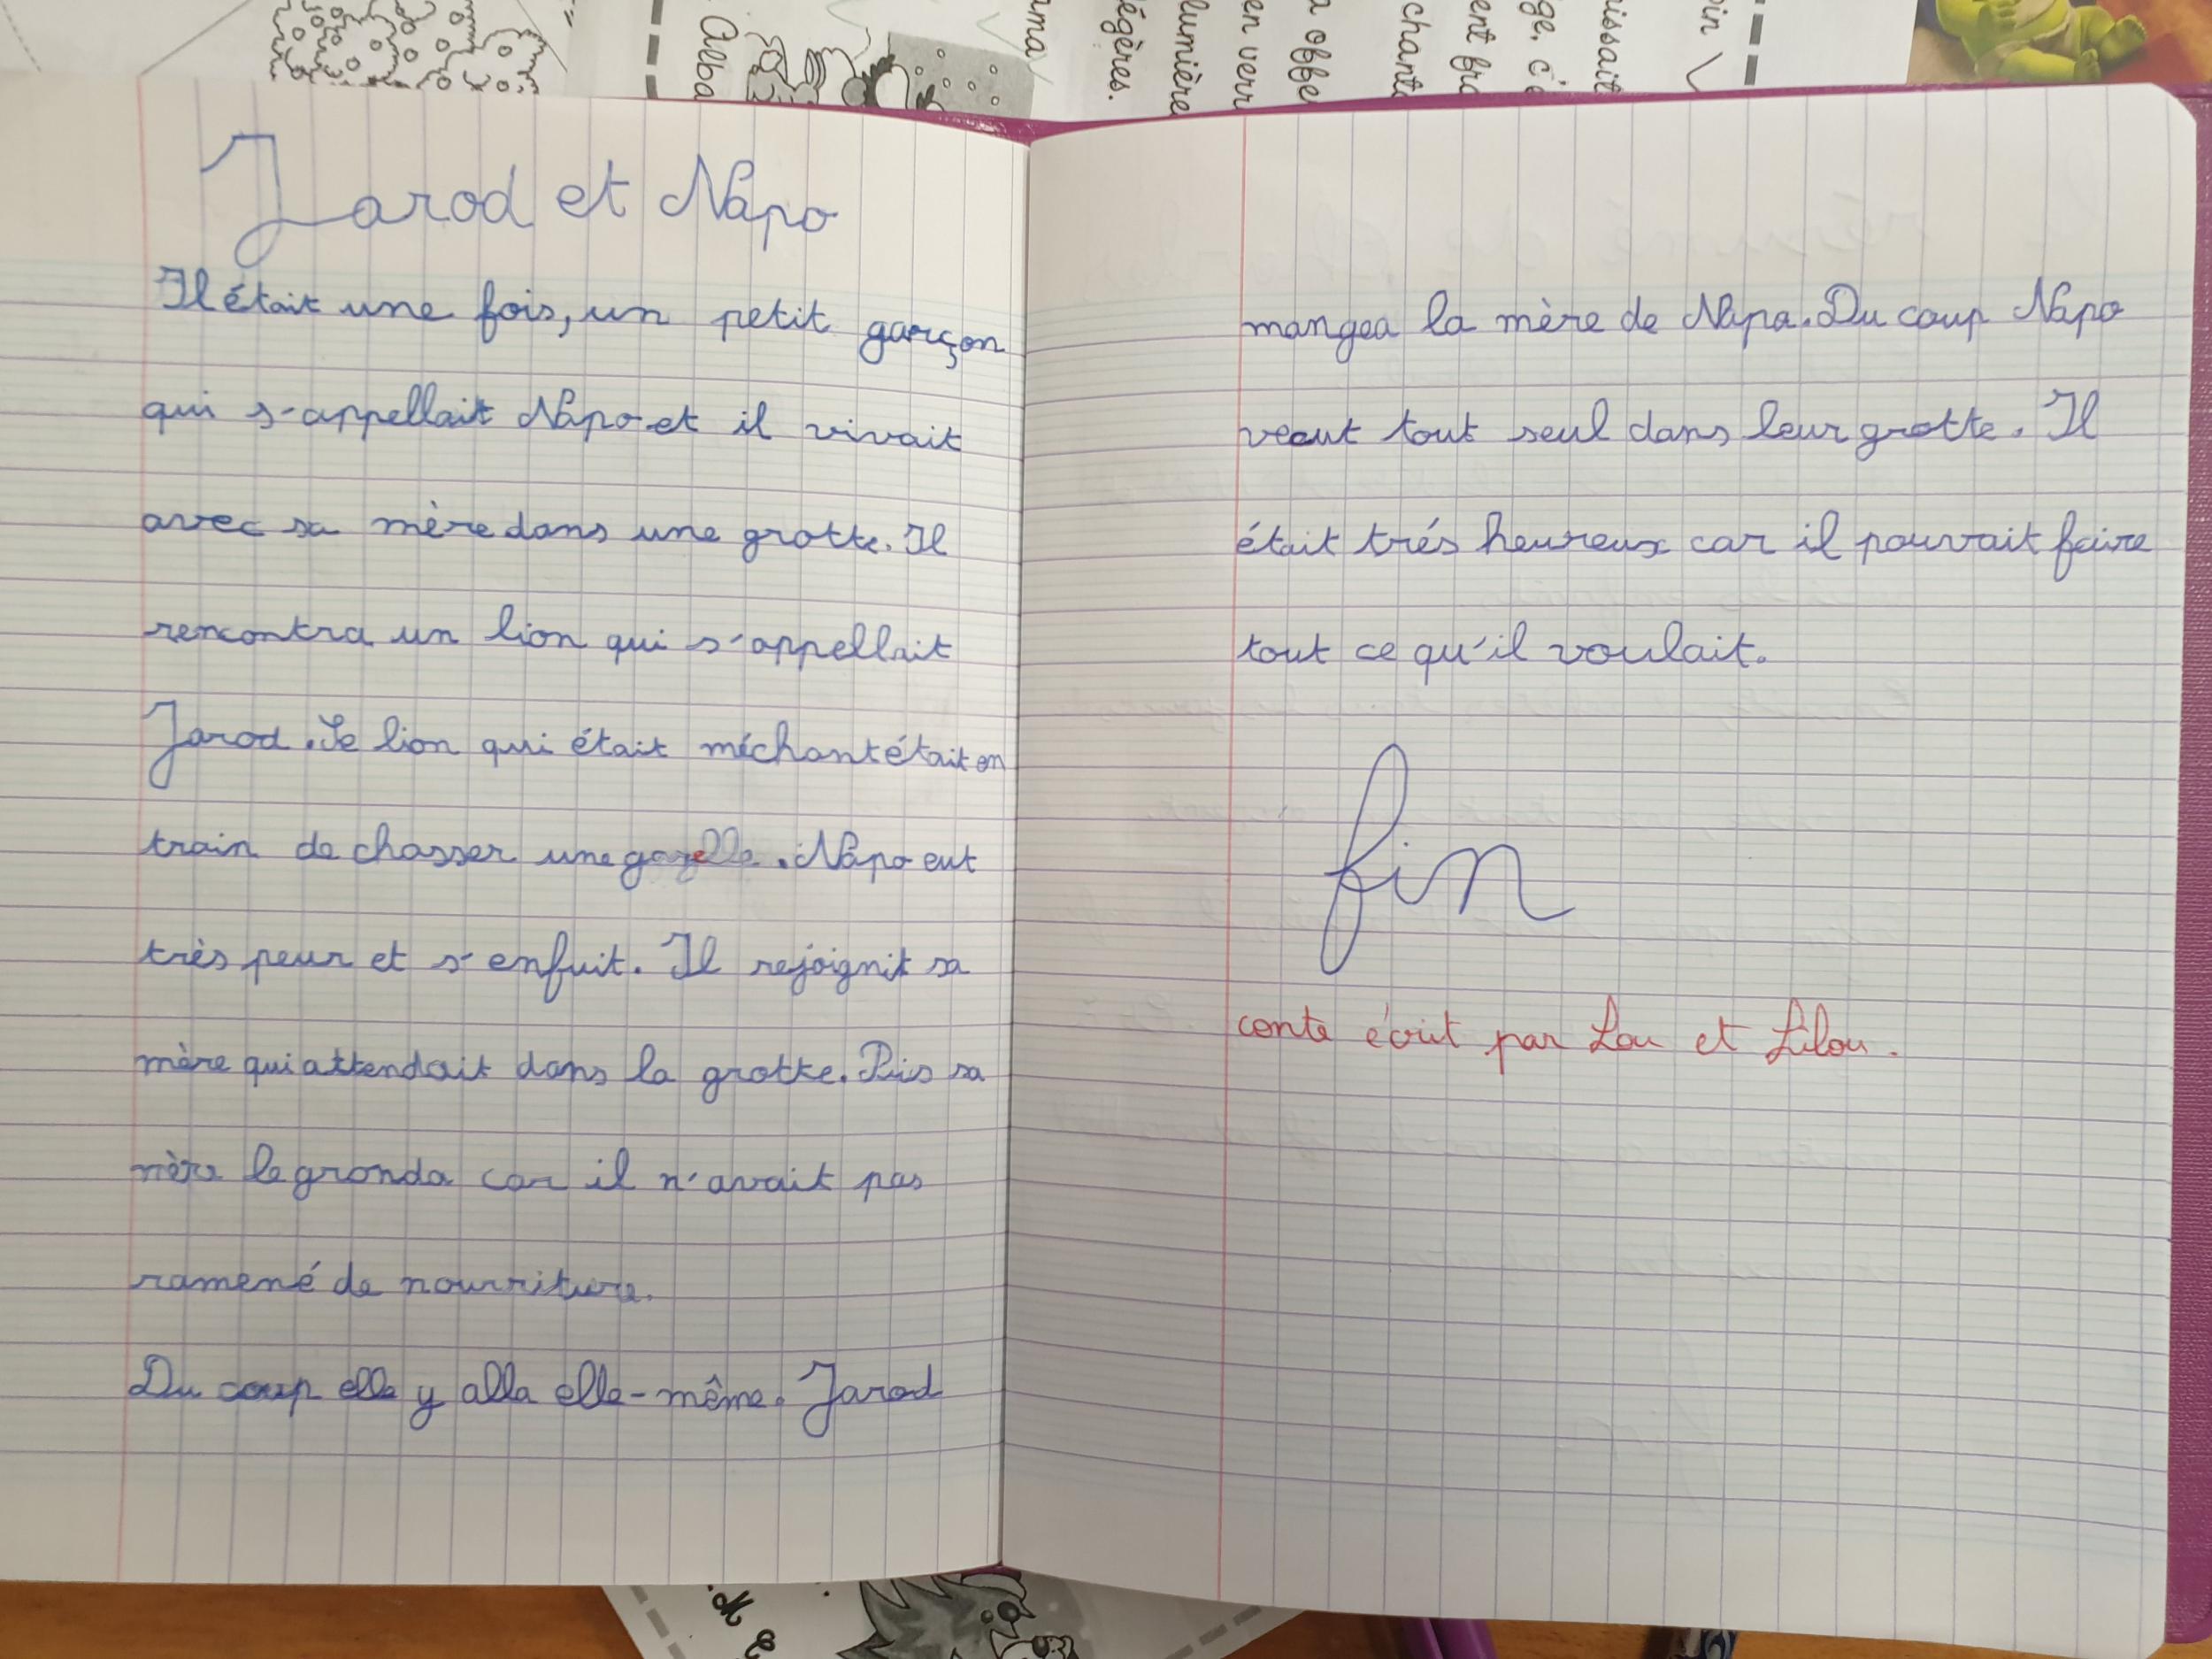 Alba
ma
égères.
lumière
en verr
a offe
chanta
ent fra
ge, c'é
issait
in
Jarod et Napo
Il était une fois, un petit garçon
qui s'appellait Napo et il vivait
avec sa mère dans une grotte. Il
rencontra un lion qui s'appellait
Jarod. Le lion qui était méchant était en
train de chasser une gazelle. Napo eut
très peur et s'enfuit. Il rejoignit sa
mère qui attendait dans la grotte. Puis sa
mère le gronda car il n'avait pas
ramené de nourriture.
Du coup elle y alla elle-même. Jarod
mangea la mère de Napa. Du coup Napo
vecut tout seul dans leur grotte. Il
était trés heureux car il pouvait faire
tout ce qu'il voulait.
fin
conte écrit par Lou et Lilou.